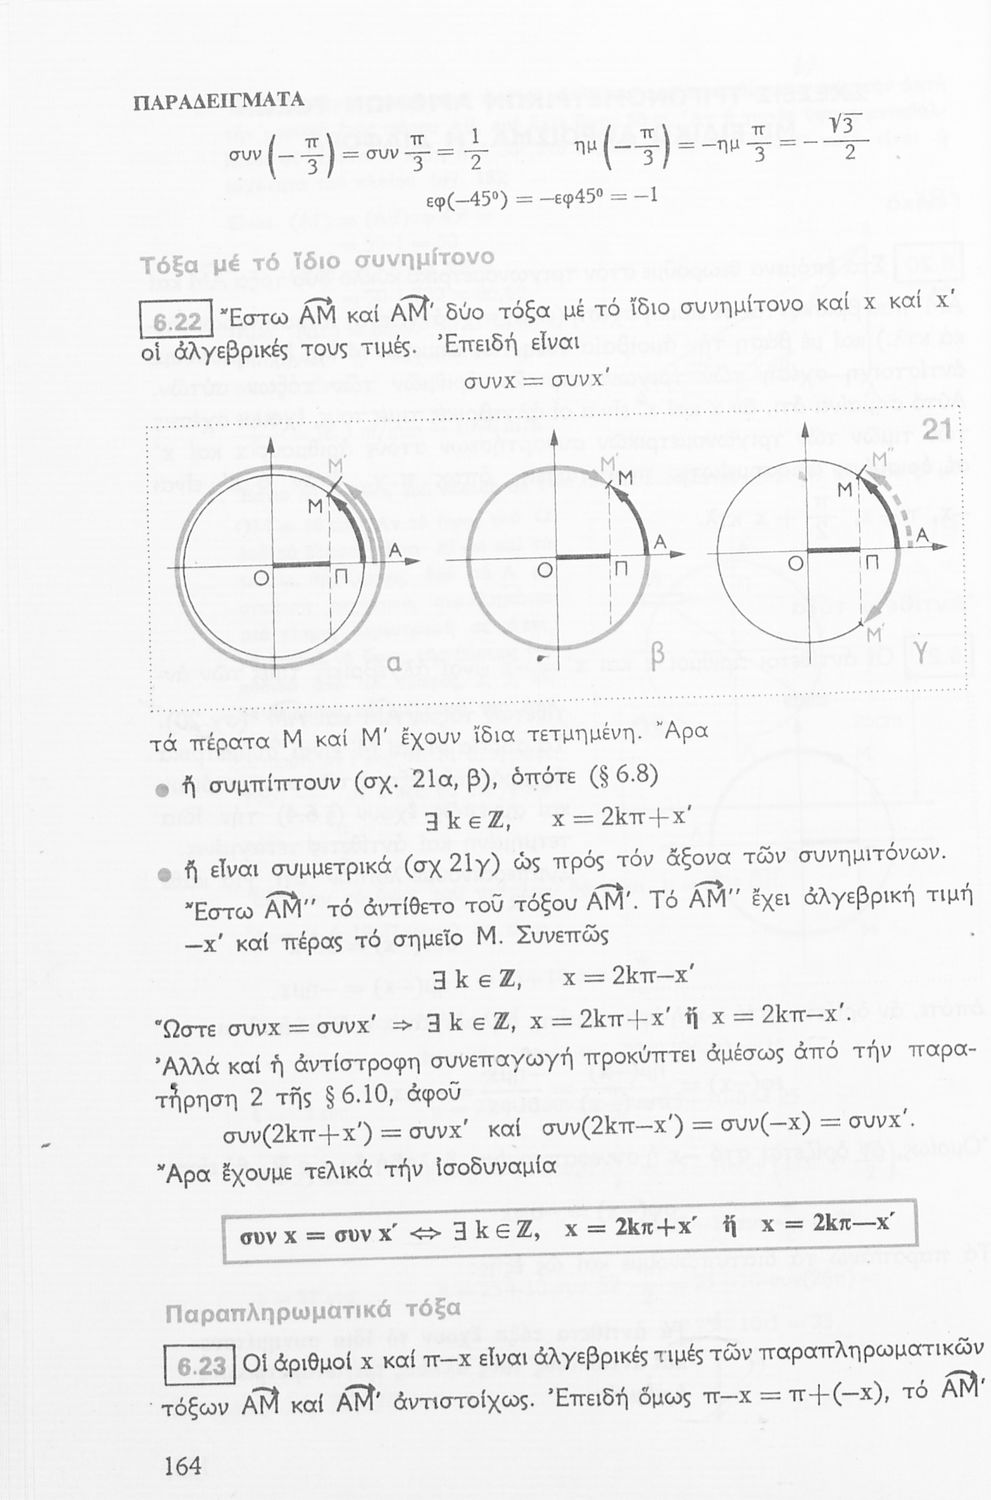 ΠΑΡΑΔΕΙΓΜΑΤΑ
συν(−π/3) = συν π/3 = 1/2   ημ(−π/3) = −ημ π/3 = −√3/2
εφ(−45⁰) = −εφ45⁰ = −1
Τόξα μέ τό ἴδιο συνημίτονο
6.22 Ἔστω ΑΜ καί ΑΜ′ δύο τόξα μέ τό ἴδιο συνημίτονο καί x καί x′
οἱ ἀλγεβρικές τους τιμές. Ἐπειδή εἶναι
συνx = συνx′
21
Μ′ Μ Α Ο Π α
Μ′ Μ Α Ο Π β
Μ″ Μ Α Ο Π Μ′ γ
τά πέρατα Μ καί Μ′ ἔχουν ἴδια τετμημένη. Ἄρα
● ἤ συμπίπτουν (σχ. 21α, β), ὁπότε (§ 6.8)
∃ k ∈ ℤ, x = 2kπ+x′
● ἤ εἶναι συμμετρικά (σχ 21γ) ὡς πρός τόν ἄξονα τῶν συνημιτόνων.
Ἔστω ΑΜ″ τό ἀντίθετο τοῦ τόξου ΑΜ′. Τό ΑΜ″ ἔχει ἀλγεβρική τιμή
−x′ καί πέρας τό σημεῖο Μ. Συνεπῶς
∃ k ∈ ℤ, x = 2kπ−x′
Ὥστε συνx = συνx′ ⇒ ∃ k ∈ ℤ, x = 2kπ+x′ ἤ x = 2kπ−x′.
Ἀλλά καί ἡ ἀντίστροφη συνεπαγωγή προκύπτει ἀμέσως ἀπό τήν παρα-
τήρηση 2 τῆς § 6.10, ἀφοῦ
συν(2kπ+x′) = συνx′ καί συν(2kπ−x′) = συν(−x) = συνx′.
Ἄρα ἔχουμε τελικά τήν ἰσοδυναμία
συν x = συν x′ ⇔ ∃ k ∈ ℤ, x = 2kπ+x′ ἤ x = 2kπ—x′
Παραπληρωματικά τόξα
6.23 Οἱ ἀριθμοί x καί π−x εἶναι ἀλγεβρικές τιμές τῶν παραπληρωματικῶν
τόξων ΑΜ καί ΑΜ′ ἀντιστοίχως. Ἐπειδή ὅμως π−x = π+(−x), τό ΑΜ′
164